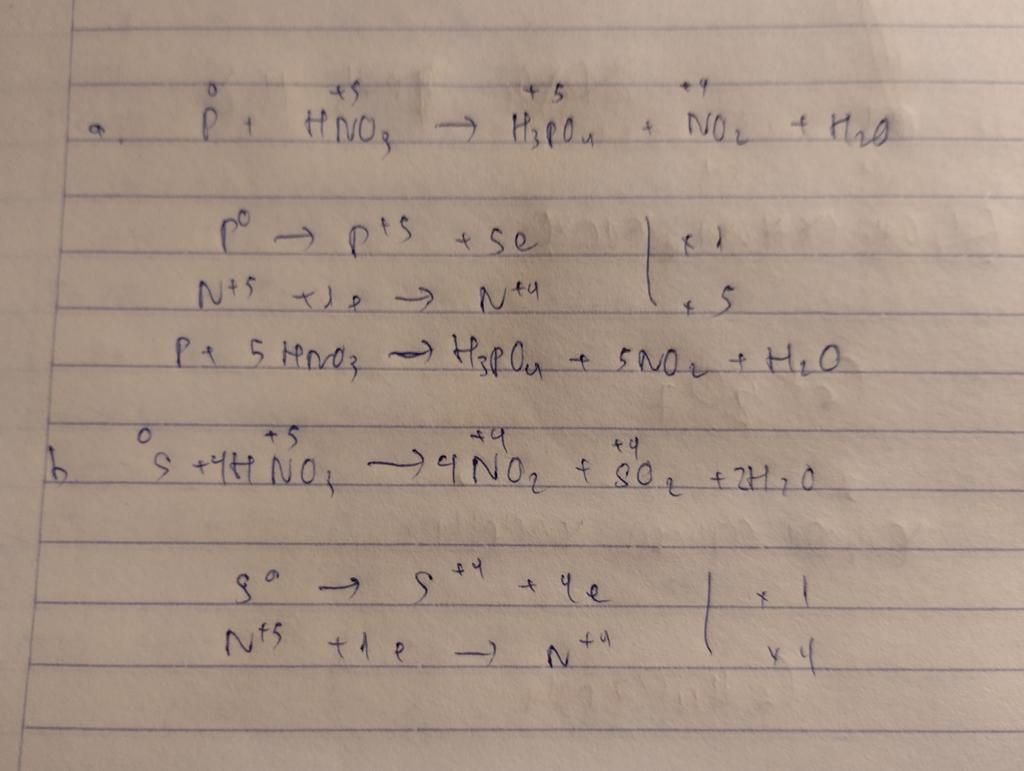 a. P⁰ + HN⁺⁵O₃ → H₃P⁺⁵O₄ + N⁺⁴O₂ + H₂O
P⁰ → P⁺⁵ + 5e | × 1
N⁺⁵ + 1e → N⁺⁴ | × 5
P + 5HNO₃ → H₃PO₄ + 5NO₂ + H₂O
b. S⁰ + 4HN⁺⁵O₃ → 4N⁺⁴O₂ + S⁺⁴O₂ + 2H₂O
S⁰ → S⁺⁴ + 4e | × 1
N⁺⁵ + 1e → N⁺⁴ | × 4